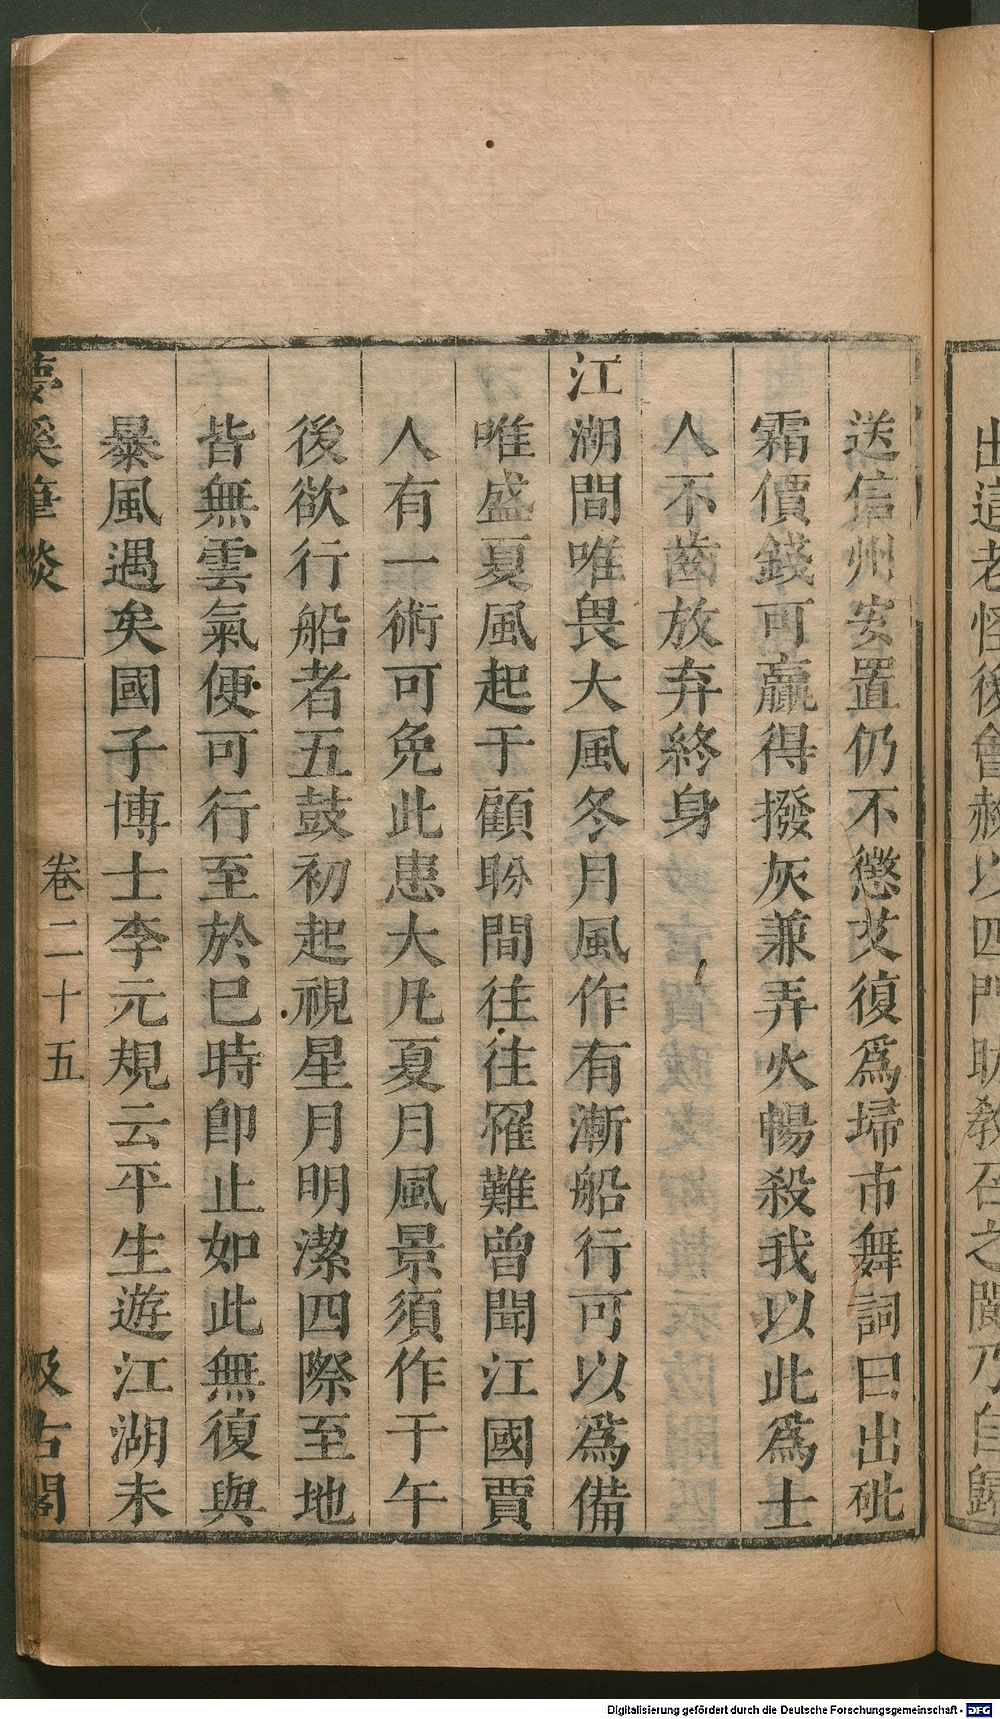 出這老怪後會赦以四門助教召之聞乃自歸
送信州安置仍不懲艾復爲埽市舞詞曰出砒
霜價錢可贏得撥灰兼弄火暢殺我以此爲士
人不齒放弃終身
江湖間唯畏大風冬月風作有漸船行可以爲備
唯盛夏風起于顧盼間往往罹難曾聞江國賈
人有一術可免此患大凡夏月風景須作于午
後欲行船者五鼓初起視星月明潔四際至地
皆無雲氣便可行至於巳時即止如此無復與
暴風遇矣國子博士李元規云平生遊江湖未
夢溪筆談 卷二十五 汲古閣
Digitalisierung gefördert durch die Deutsche Forschungsgemeinschaft - DFG